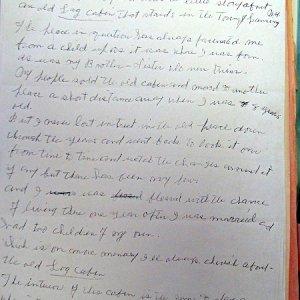 an old Log Cabin that stands in the
The place in question has always fascinated me
from a child up as it was where I was born.
as was my Brother + Sister
My people sold the old cabin and moved to another
place a short distance away when I was 8 years
old.
But I never lost interest in the old place down
through the years and went back to look it over
from time to time and noted the changes around it
if any but there has been very few
and I was blessed with the chance
of living there one year after I was married and
had two children of my own.
Which is one more memory I'll always cherish about
the old Log Cabin
The interior of this cabin is